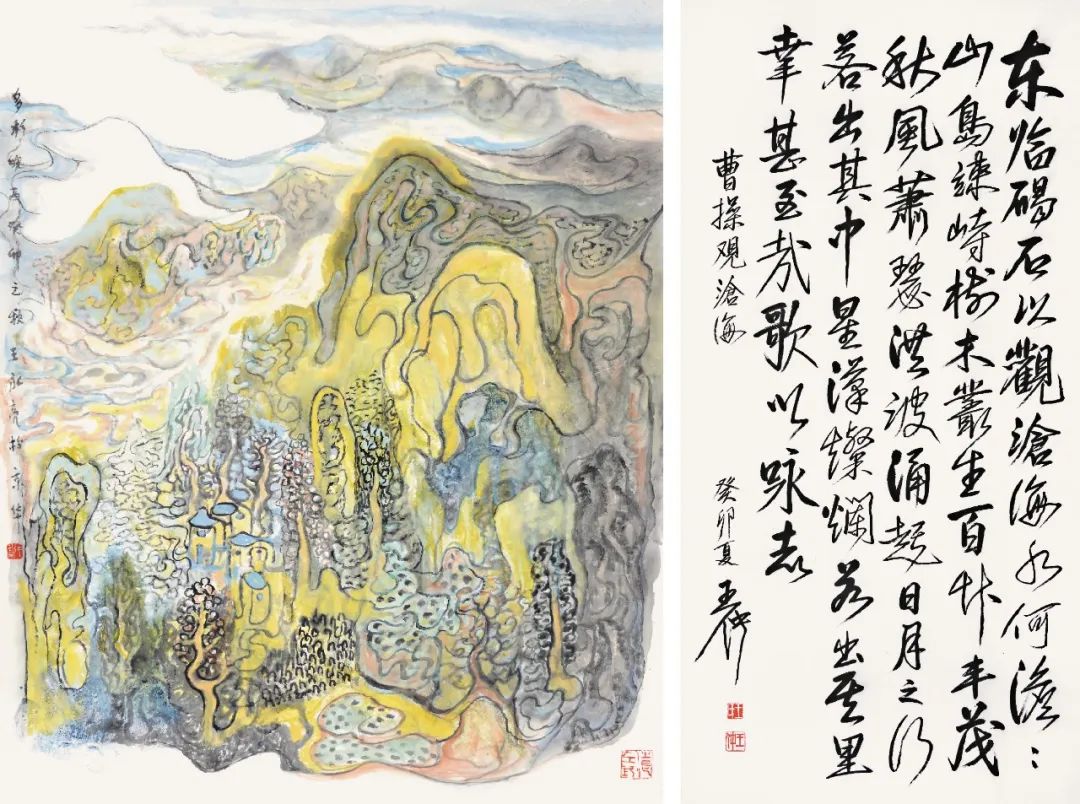 多彩峡谷癸卯之秋王於京华
东临碣石以觀滄海水何澹:
山島竦峙樹木叢生百艸丰茂
秋風蕭瑟洪波涌起日月之行
若出其中星漢燦爛若出其里
幸甚至哉歌以咏志
曹操观滄海
癸卯夏